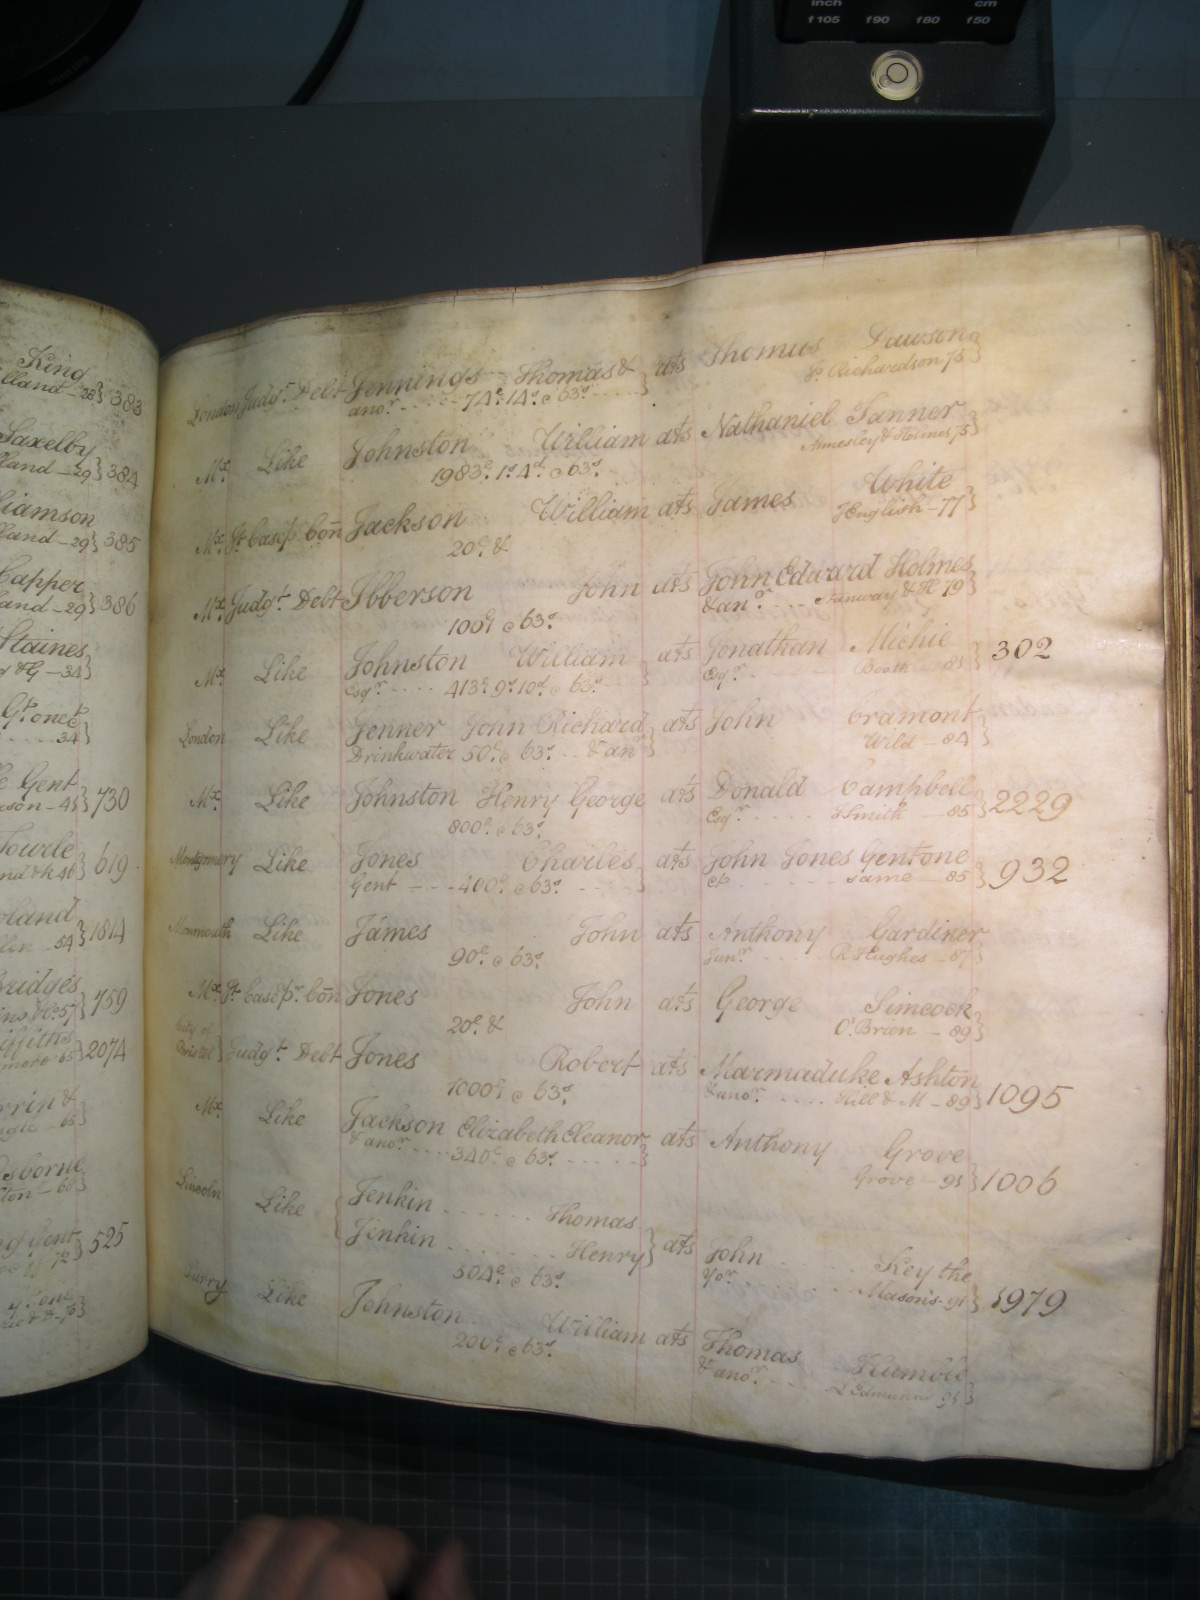 inch cm
f105 f90 f80 f50
King
lland - 28} 383
Saxelby
lland - 29} 384
liamson
lland - 29} 385
Capper
land - 29} 386
Staines
y & G - 34}
Gt. onec
34}
Gent
son - 45} 730
Towle
nd & k 46} 619
oland
lin - 54} 1814
ridges
ins & Co 57} 759
iffiths
more 65} 2074
rrin &
gle - 65
Osborne
ton - 68}
Gent
72} 525
London Judgt. Debt Jennings Thomas & } ats Thomas Lawson
anor. 74£. 14s. c 63s. Js. Richardson 75}
Mx. Like Johnston William ats Nathaniel Tanner
1983£. 1s. 4d. c 63s. Annesley & Holmes 75}
Mx. Pt. Case pr. Con Jackson William ats James White
20£. & J English - 77}
Mx. Judgt. Debt Ibberson John ats John Edward Holmes
100£ c 63s. & anr. Nanway & H 79}
Mx. Like Johnston William } ats Jonathan Michie } 302
Esqr. 413£. 9s. 10d. c 63s. Esqr. Booth 83}
London Like Jenner John Richard } ats John Cramont
Drinkwater 50£. c 63s. & anr Wild - 84}
Mx. Like Johnston Henry George ats Donald Campbell } 2229
800£. c 63s. Esqr. J Smith - 85
Montgomery Like Jones Charles } ats John Jones Gent one } 932
Gent - 400£. c 63s. &c. same - 85
Monmouth Like James John ats Anthony Gardiner
90£. c 63s. Junr. R Hughes - 87}
Mx. Pt. Case pr. Con Jones John ats George Simcock
20£. & O'Brien - 89}
City of
Bristol } Judgt. Debt Jones Robert ats Marmaduke Ashton
1000£ c 63s. & anor. Hill & M - 89} 1095
Mx. Like Jackson Elizabeth Eleanor } ats Anthony Grove
& anor. 340£. c 63s. Grove - 91} 1006
Lincoln Like { Jenkin Thomas
Jenkin Henry } ats John Key the
504£. c 63s. yor. Masons - 91} 1979
Surry Like Johnston William ats Thomas Humble
200£. c 63s. & anor. Edmunds 91}